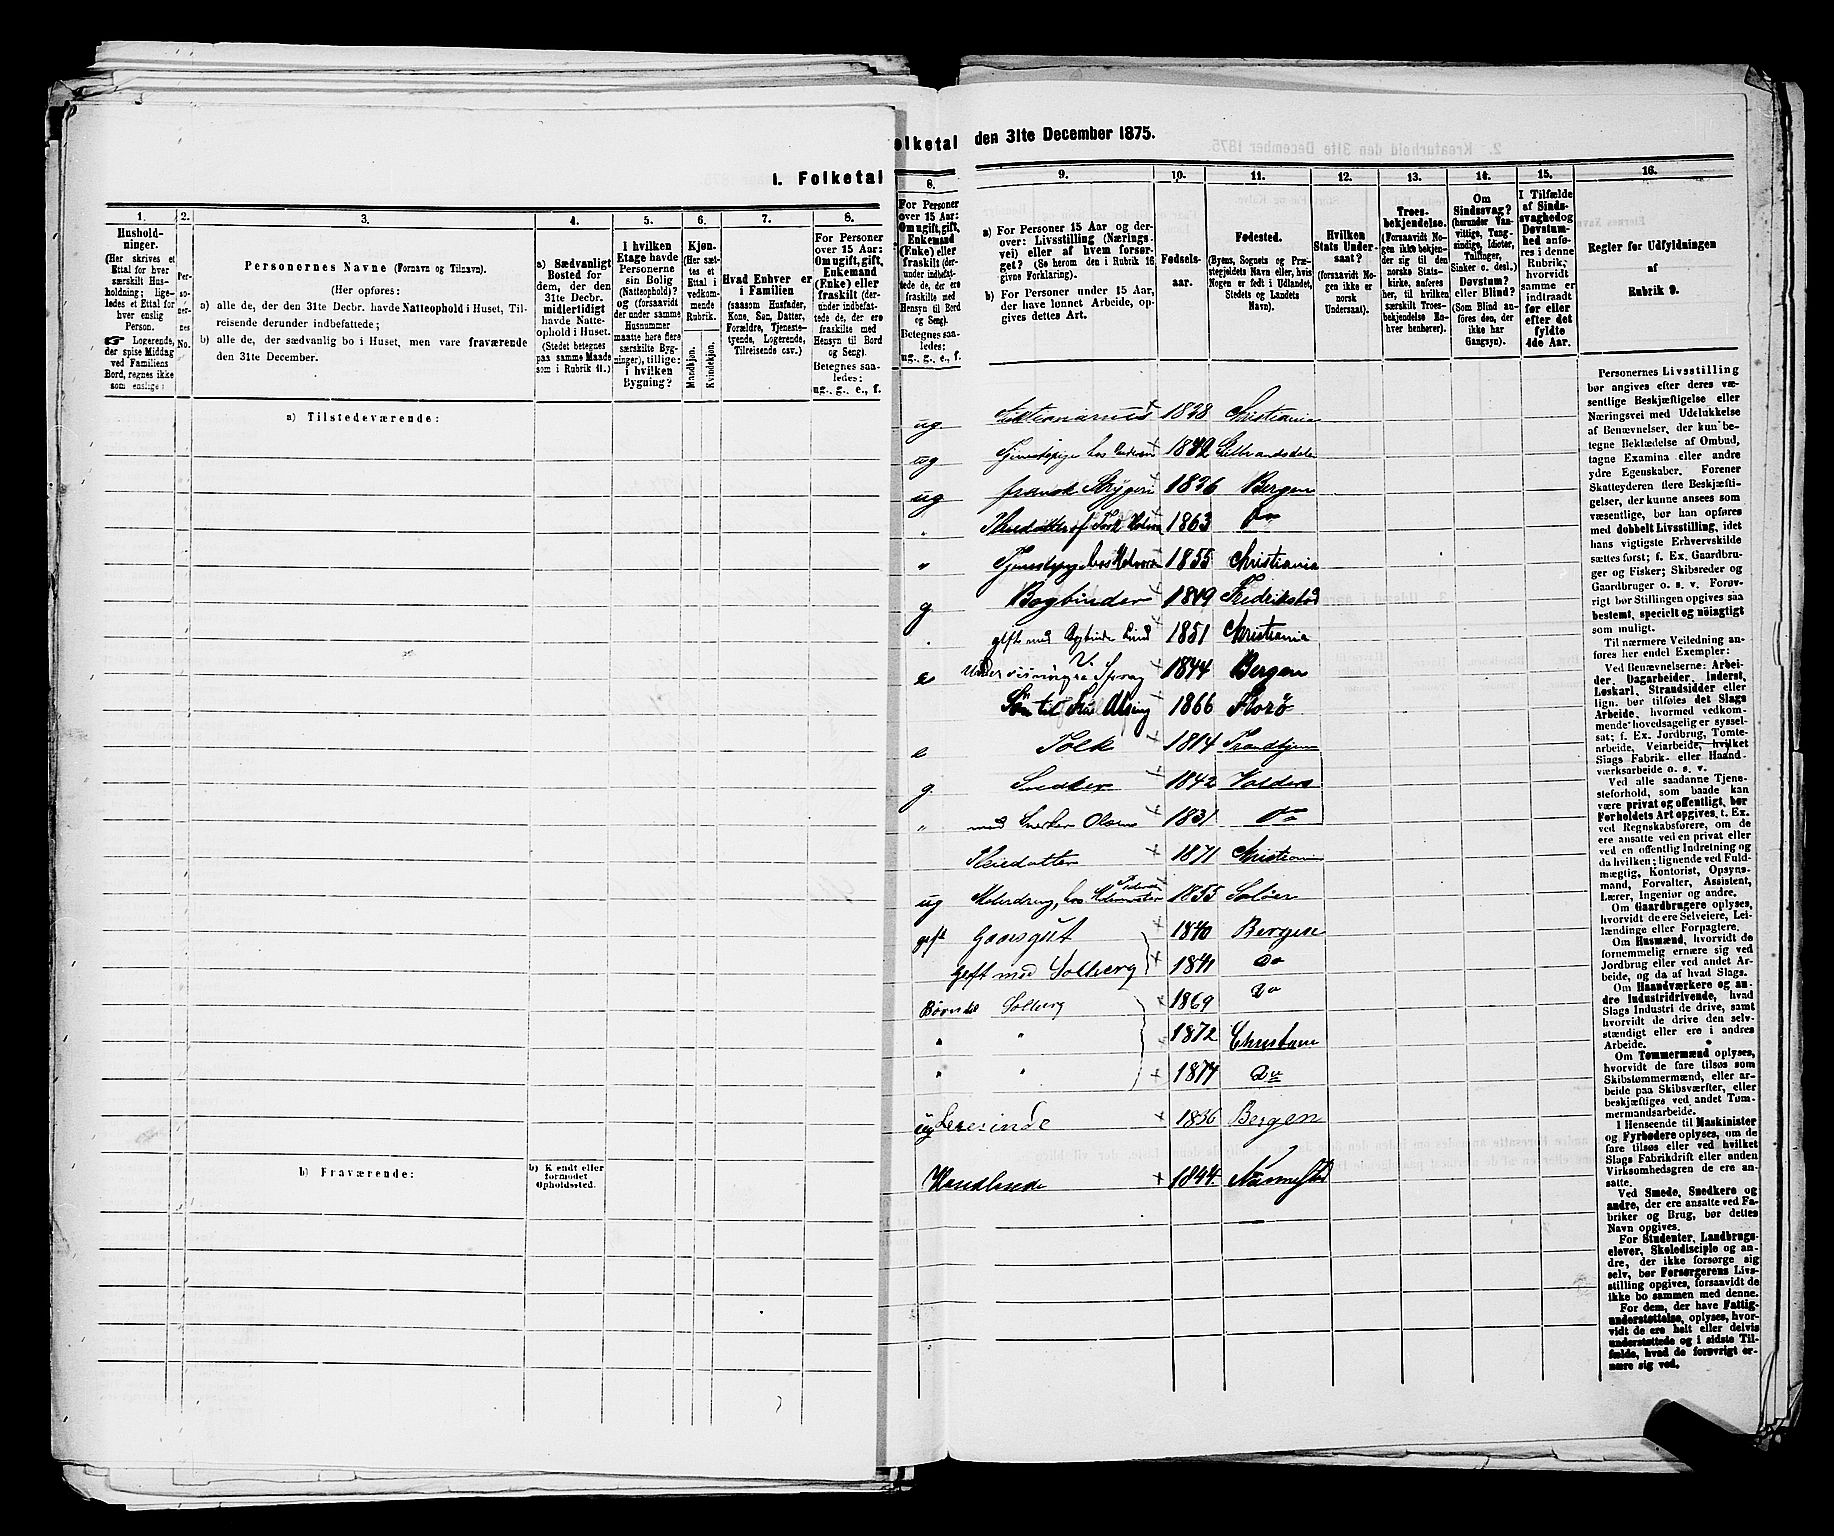 1. Folketal
olketal den 31te December 1875.
1. 2. 3. 4. 5. 6. 7. 8.
Hushold-
ninger.
(Her skrives et
Ettal for hver
særskilt Hus-
holdning; lige-
ledes et Ettal for
hver enslig
Person.
☞ Logerende,
der spise Middag
ved Familiens
Bord, regnes ikke
som enslige.)
Per-
so-
ner-
nes
No.
Personernes Navne (Fornavn og Tilnavn).
(Her opføres:
a) alle de, der den 31te Decbr. havde Natteophold i Huset, Til-
reisende derunder indbefattede;
b) alle de, der sædvanlig bo i Huset, men vare fraværende
den 31te December.
a) Sædvanligt
Bosted for
dem, der den
31te Decbr.
midlertidigt
havde Natte-
ophold i Huset.
(Stedet betegnes
paa samme Maade
som i Rubrik 11.)
I hvilken
Etage havde
Personerne
sin Bolig
(Natteophold)?
og (forsaavidt
der under samme
Husnummer
maatte høre flere
særskilte Byg-
ninger), tillige:
i hvilken
Bygning?
Kjøn.
(Her sæt-
tes et
Ettal i
vedkom-
mende
Rubrik.
Mandkjøn.
Kvindekjøn.
Hvad Enhver er
i Familien
(saasom Husfader,
Kone, Søn, Datter,
Forældre, Tjeneste-
tyende, Logerende,
Tilreisende osv.)
For Personer
over 15 Aar:
Om ugift, gift,
Enkemand
(Enke) eller
fraskilt (der-
under indbefat-
tede de, der ere
fraskilte med
Hensyn til Bord
og Seng).
Betegnes saa-
ledes:
ug., g., e., f.
a) Tilstedeværende:
b) Fraværende:
b) Kjendt eller
formodet
Opholdssted.
8. 9. 10. 11. 12. 13. 14. 15. 16.
For Personer
over 15 Aar:
Om ugift, gift,
Enkemand
(Enke) eller
fraskilt (der-
under indbefat-
tede de, der ere
fraskilte med
Hensyn til Bord
og Seng).
Betegnes saa-
ledes:
ug., g., e., f.
a) For Personer 15 Aar og der-
over: Livsstilling (Nærings-
vei) eller af hvem forsør-
get? (Se herom den i Rubrik 16
givne Forklaring).
b) For Personer under 15 Aar,
der have lønnet Arbeide, op-
gives dettes Art.
Fødsels-
aar.
Fødested.
(Byens, Sognets og Præ-
stegjeldets Navn eller, hvis
Nogen er født i Udlandet,
Stedets og Landets
Navn).
Hvilken
Stats Under-
saat?
(forsaavidt No-
gen ikke er
norsk
Undersaat).
Troes-
bekjendelse.
(Forsaavidt No-
gen ikke bekjen-
der sig til den
norske Stats-
kirke, anføres
her, til hvilken
særskilt Troes-
bekjendelse En-
hver henhører).
Om
Sindssvag?
(herunder Van-
vittige, Tung-
sindige, Idioter,
Tullinger,
Sinker o. desl.)
Døvstum?
eller Blind?
(Som Blind an-
føres den, der
ikke har
Gangsyn).
I Tilfælde
af Sinds-
svaghed og
Døvstum-
hed anfø-
res i denne
Rubrik,
hvorvidt
samme er
indtraadt
før eller
efter det
fyldte
4de Aar.
Regler for Udfyldningen
af
Rubrik 9.
ug 1828 Christiania
ug Tjenestepige hos 18
ug 1836 Bergen
" 1863 Do
" 1855 Christiania
g Bogbinder 1849 Fredrikstad
gift med 1851 Christiania
e 1844 Bergen
Søn til Fru 1866 Florø
e Tolk 1814 Trondhjem
g Snedker 1842 Valders
" med Snedker Olsen 1831 Do
Pleiedatter 1871 Christiania
ug 1855 Soløer
gift 1840 Bergen
Gift med Solberg 1841 Do
Børn Solberg 1869 Do
" " 1872 Christiania
" " 1874 Do
ug 1836 Bergen
Handlende 1844.
Personernes Livsstilling
bør angives efter deres væ-
sentlige Beskjæftigelse eller
Næringsvei med Udelukkelse
af Benævnelser, der kun be-
tegne Beklædelse af Ombud,
tagne Examina eller andre
ydre Egenskaber. Forener
Skatteyderen flere Beskjæfti-
gelser, der kunne ansees som
væsentlige, bør han opføres
med dobbelt Livsstilling, idet
hans vigtigste Erhvervskilde
sættes først; f. Ex. Gaardbru-
ger og Fisker; Skibsreder og
Gaardbruger o. s. v. Forøv-
rigt bør Stillingen opgives saa
bestemt, specielt og nøiagtigt
som muligt.
Til nærmere Veiledning an-
føres her endel Exempler:
Ved Benævnelserne: Arbei-
der, Dagarbeider, Inderst,
Løskarl, Strandsidder eller
lign. bør tilføies det Slags
Arbeide, hvormed vedkom-
mende hovedsagelig er syssel-
sat; f. Ex. Jordbrug, Tomte-
arbeide, Veiarbeide, hvilket
Slags Fabrik- eller Haand-
værksarbeide o. s. v.
Ved alle saadanne Tjene-
steforhold, som baade kan
være privat og offentligt, bør
Forholdets Art opgives, t. Ex.
ved Regnskabsførere, om de
ere ansatte ved en privat eller
ved en offentlig Indretning og
da hvilken; lignende ved Fuld-
mægtig, Kontorist, Opsyns-
mand, Forvalter, Assistent,
Lærer, Ingeniør og andre.
Om Gaardbrugere oplyses,
hvorvidt de ere Selveiere, Lei-
lændinge eller Forpagtere.
Om Husmænd, hvorvidt de
fornemmelig ernære sig ved
Jordbrug eller ved andet Ar-
beide, og da af hvad Slags.
Om Haandværkere og an-
dre Industridrivende, hvad
Slags Industri de drive, samt
hvorvidt de drive den selv-
stændigt eller ere i andres
Arbeide.
Om Tømmermænd oplyses,
hvorvidt de fare tilsøs som
Skibstømmermænd, eller ar-
beide paa Skibsværfter, eller
beskjæftiges ved andet Tøm-
mermandsarbeide.
I Henseende til Maskinister
og Fyrbødere oplyses, om de
fare tilsøs eller ved hvilket
Slags Fabrikdrift eller anden
Virksomhedsgren de ere an-
satte.
Ved Smede, Snedkere og
andre, der ere ansatte ved Fa-
briker og Brug, bør dettes
Navn opgives.
For Studenter, Landbrugs-
elever, Skoledisciple og an-
dre, der ikke forsørge sig
selv, bør Forsørgerens Livs-
stilling opgives, forsaavidt de
ikke bo sammen med denne.
For dem, der have Fattig-
understøttelse, oplyses, hvor-
vidt de ere helt eller delvis
understøttede og i sidste Til-
fælde, hvad de forøvrigt er-
nære sig ved.